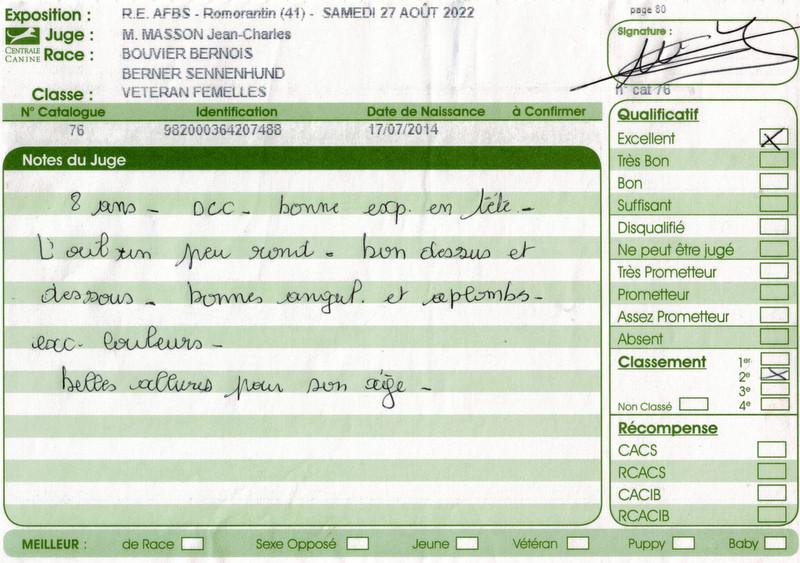 Exposition : R.E. AFBS - Romorantin (41) - SAMEDI 27 AOÛT 2022
page 80
CENTRALE CANINE
Juge : M. MASSON Jean-Charles
Signature :
Race : BOUVIER BERNOIS
BERNER SENNENHUND
Classe : VETERAN FEMELLES
n° cat 76
N° Catalogue Identification Date de Naissance à Confirmer
76 982000364207488 17/07/2014
Notes du Juge
8 ans - DCC - bonne exp. en tête -
L'oeil un peu rond - bon dessus et
dessous - bonnes angul. et aplombs -
exc. couleurs -
belles allures pour son âge -
Qualificatif
Excellent
Très Bon
Bon
Suffisant
Disqualifié
Ne peut être jugé
Très Prometteur
Prometteur
Assez Prometteur
Absent
Classement 1er
2e
3e
Non Classé 4e
Récompense
CACS
RCACS
CACIB
RCACIB
MEILLEUR : de Race Sexe Opposé Jeune Vétéran Puppy Baby